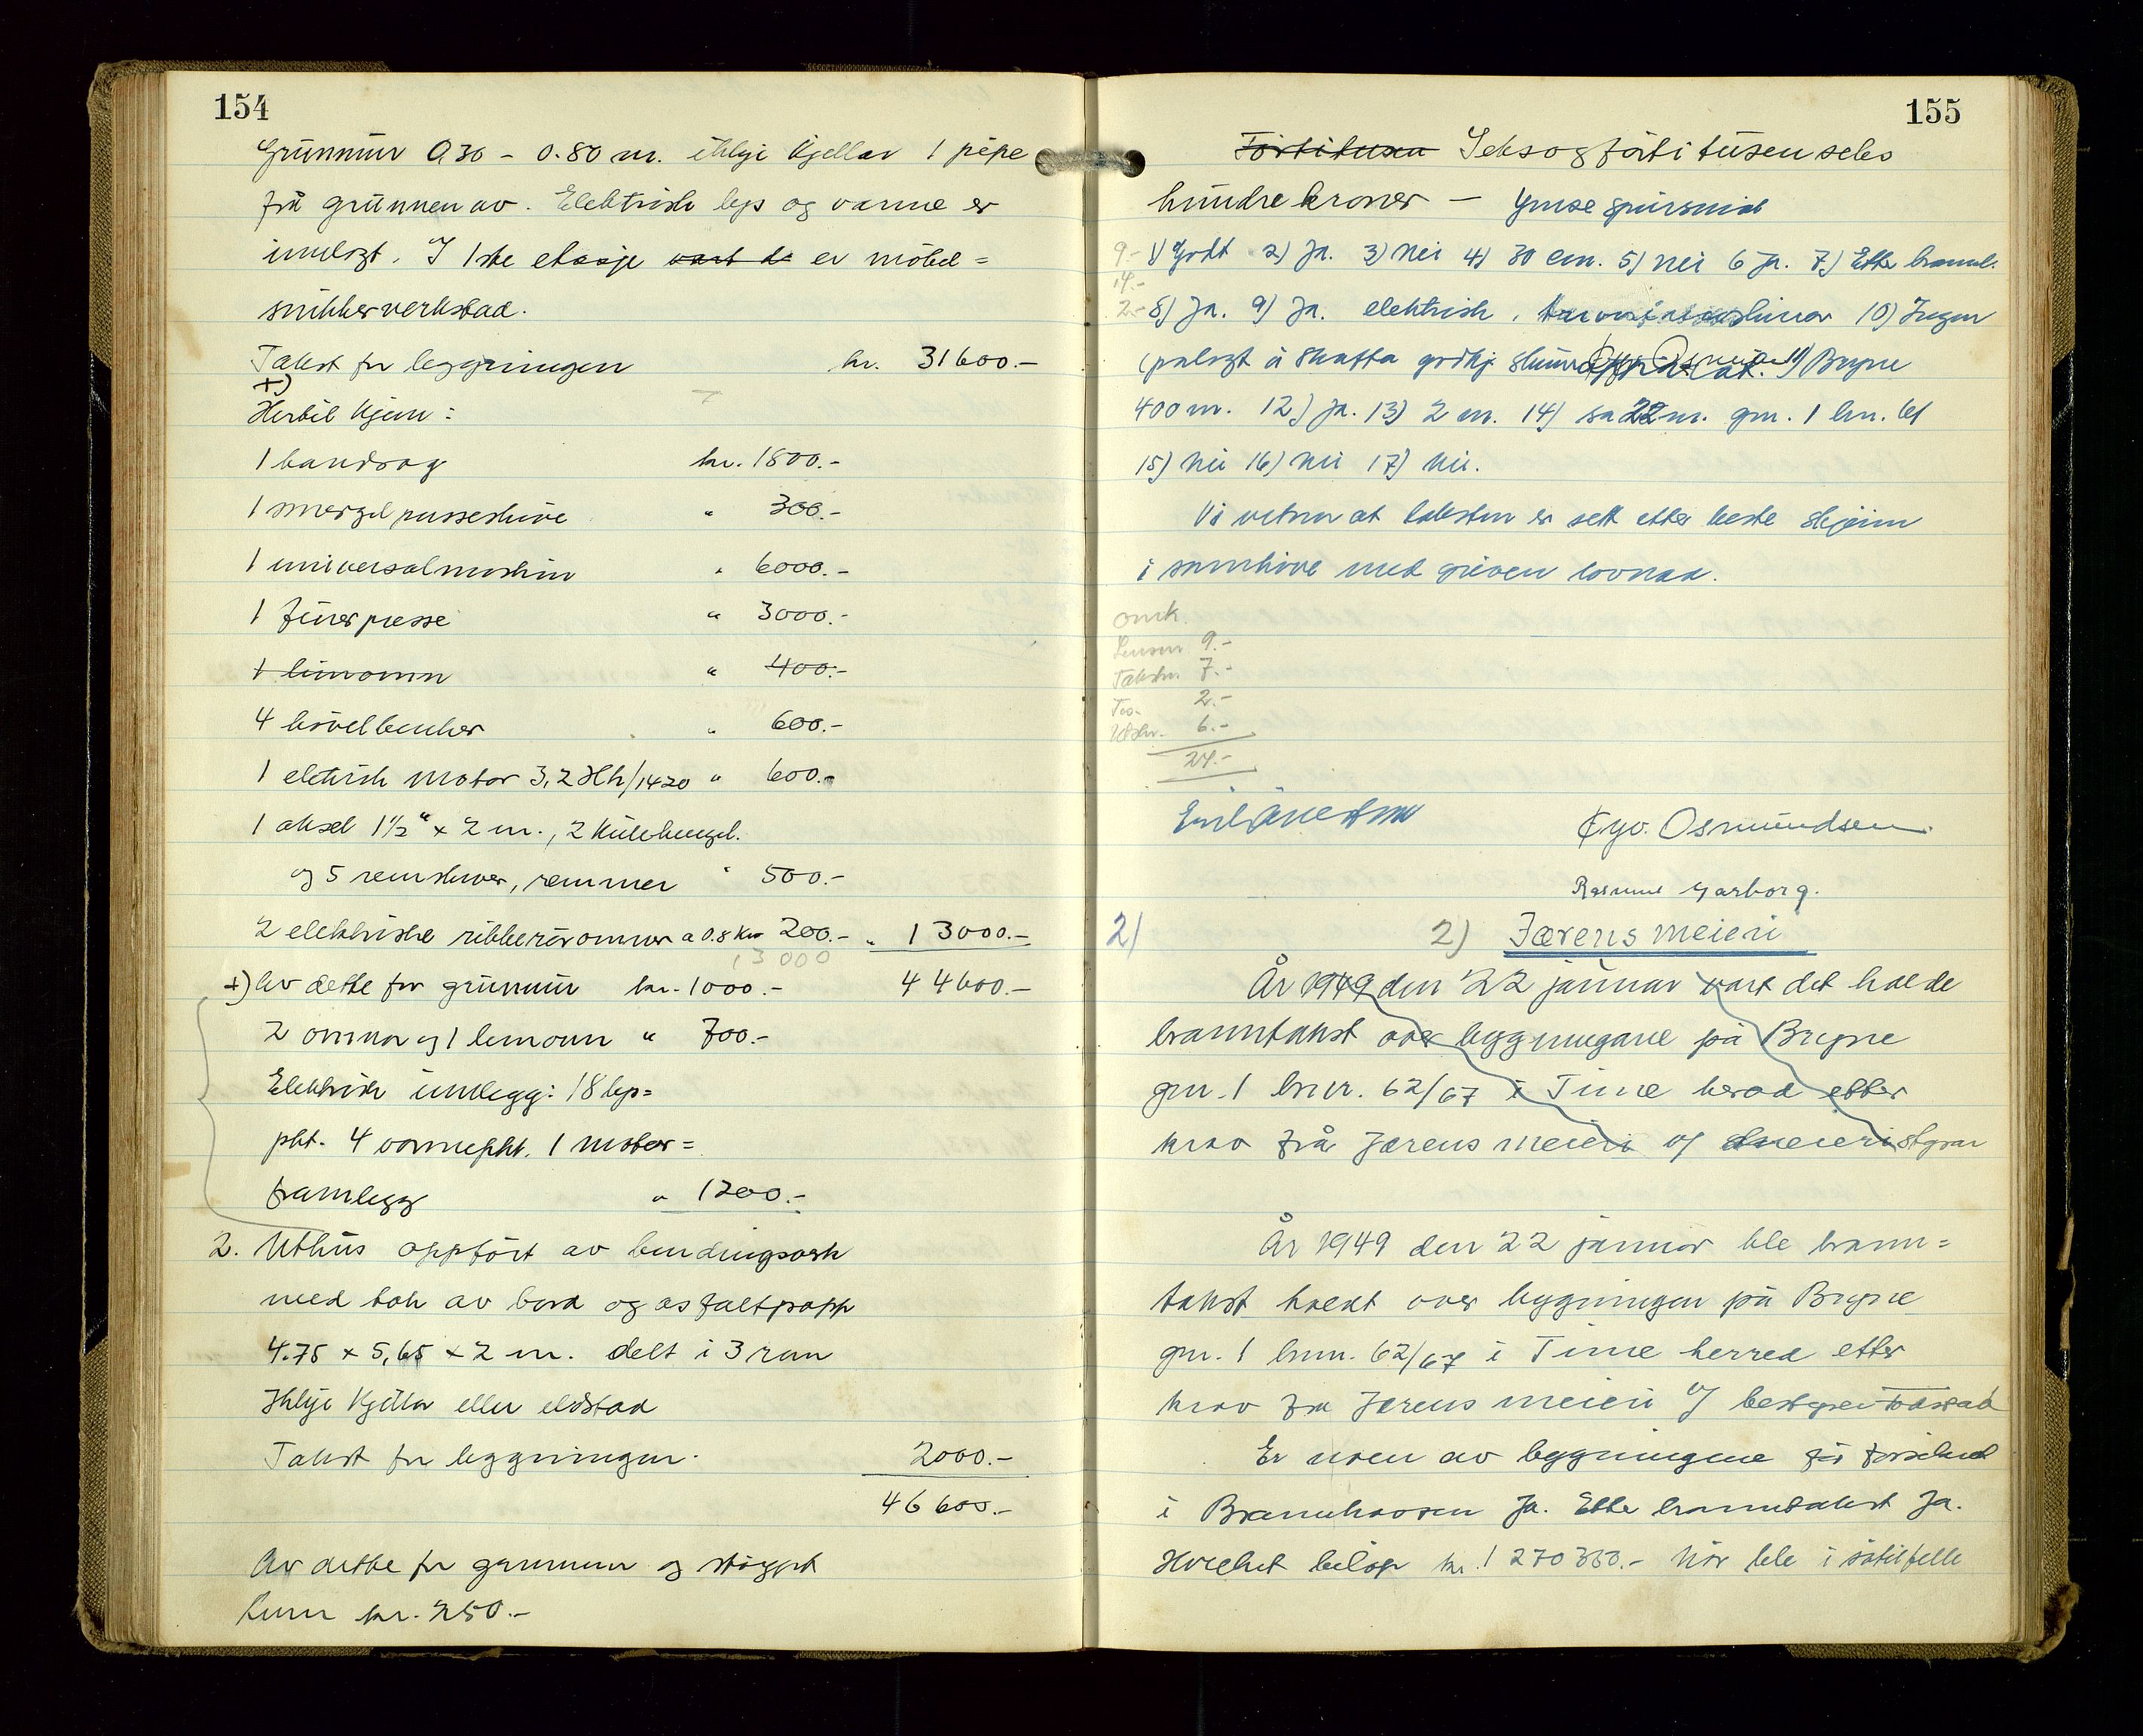 154
Grunnmur 0.30 - 0.80 m. ikkje kjellar 1 pipe
frå grunnen av. Elektrisk lys og varme er
innlagt. I 1ste etasje vart de er möbel=
snikkerverkstad.
Takst for byggningen kr. 31600.-
+)
Hertil kjem:
1 bandsag kr. 1800.-
1 smergel pusseskive " 300.-
1 universalmaskin " 6000.-
1 finerpresse " 3000.-
1 limomn " 400.-
4 hövelbenker " 600.-
1 elektrisk motor 3,2 Hk/1420 " 600.-
1 aksel 1½" x 2 m., 2 kulehengsl.
og 5 remskiver, remmer " 500.-
2 elektriske ribberöromner a 0.8 Kw 200.- " 13000.-
13000
+) Av dette for grunnmur kr. 1000.- 44600.-
2 omner og 1 limomn " 700.-
Elektrisk innlegg: 18 lys=
pkt. 4 varmepkt. 1 motor=
framlegg " 1200.-
2. Uthus oppfört av bindingsverk
med tak av bord og asfaltpapp
4.75 x 5,65 x 2 m. delt i 3 rom
Ikkje kjellar eller eldstad
Takst for byggningen. 2000.-
46600.-
Av dette for grunnmur og stöypt
kum kr. 250.-
155
Förtitusen Seksogförtitusenseks
hundre kroner — Ymse spursmål
9.- 1) Godt 2) Ja. 3) Nei 4) 30 cm. 5) Nei 6 Ja. 7) Etter brannt.
14.-
2.- 8) Ja. 9) Ja. elektrisk, 10) Ingen
(pålagt å skaffa godkj. skum apparat. 11) Bryne
400 m. 12) Ja. 13) 2 m. 14) sa 22 m. gm. 1 bn. 61
15) Nei 16) Nei 17) Nei.
Vi vitnar at taksten er sett etter beste skjönn
i samhöve med gieven lovnad.
omk.
Lensm. 9.-
Takstm. 7.-
2.-
Utskr. 6.-
24.-
Gyo. Osmundsen.
Rasmus Garborg.
2) 2) Jærens meieri
År 1949 den 22 januar vart det halde
branntakst over byggningane på Bryne
gm. 1 bnr. 62/67 i Time herad etter
krav frå Jærens meieri v/ meieristyrar
År 1949 den 22 januar ble brann=
takst holdt over bygningen på Bryne
gm. 1 bnm. 62/67 i Time herred etter
krav fra Jærens meieri v/ bestyrer
Er noen av byggningene för forsikret
i Brannkassen Ja. Ette branntakst Ja.
Hvilket belöp kr. 1 270 350.- Når ble i såtilfelle